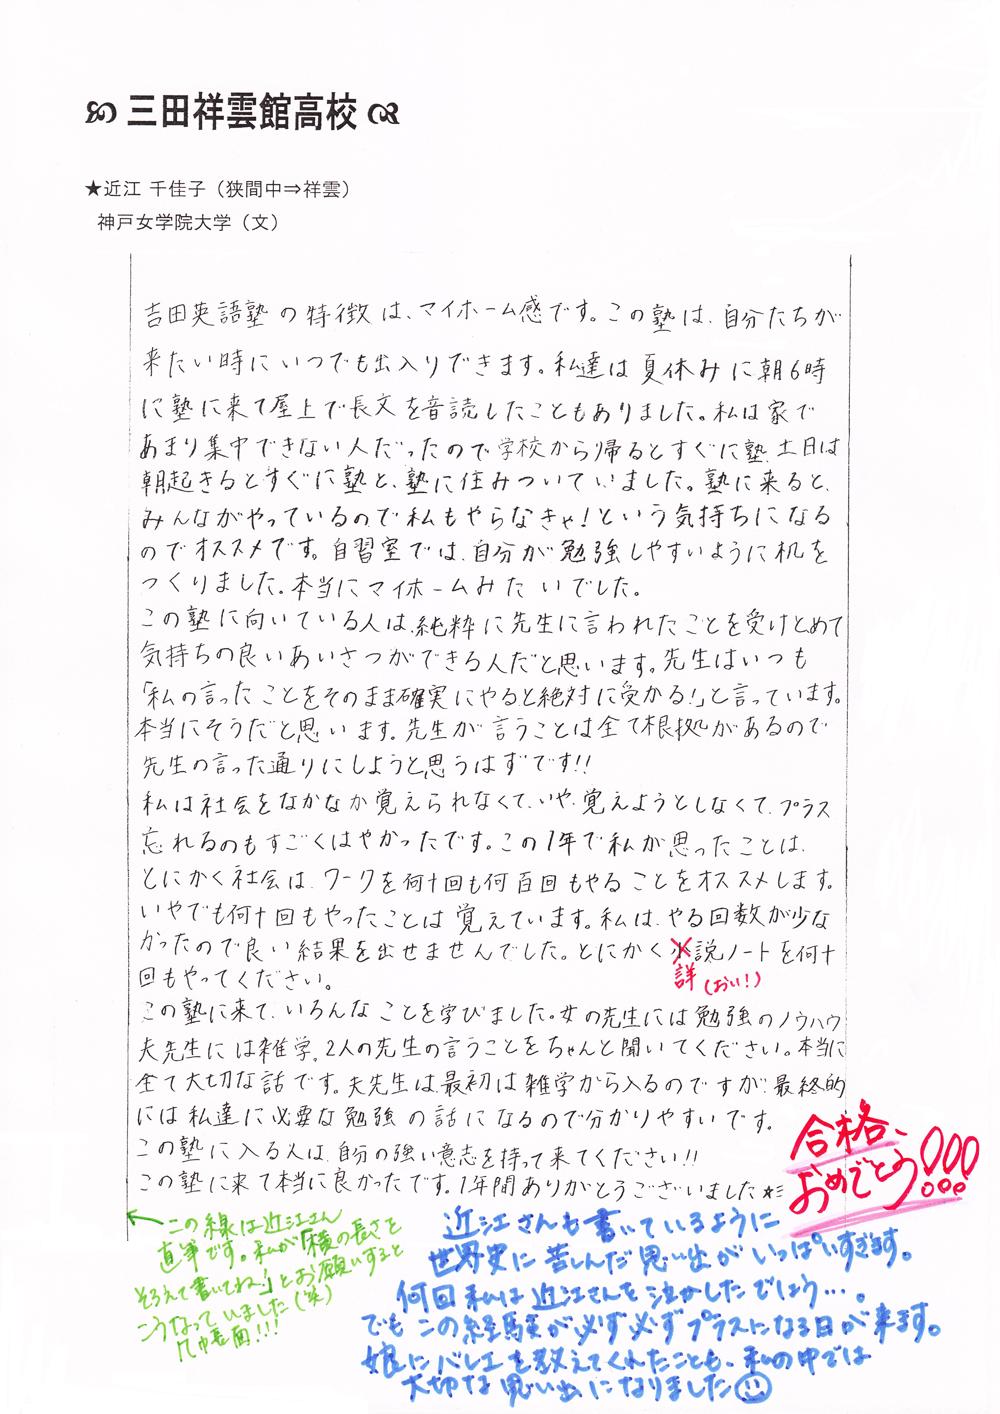 三田祥雲館高校
★近江 千佳子（狭間中⇒祥雲）
神戸女学院大学（文）
吉田英語塾の特徴は、マイホーム感です。この塾は、自分たちが
来たい時にいつでも出入りできます。私達は夏休みに朝6時
に塾に来て屋上で長文を音読したこともありました。私は家で
あまり集中できない人だったので学校から帰るとすぐに塾、土日は
朝起きるとすぐに塾と、塾に住みついていました。塾に来ると、
みんながやっているので私もやらなきゃ!という気持ちになる
のでオススメです。自習室では、自分が勉強しやすいように机を
つくりました。本当にマイホームみたいでした。
この塾に向いている人は、純粋に先生に言われたことを受けとめて
気持ちの良いあいさつができる人だと思います。先生はいつも
「私の言ったことをそのまま確実にやると絶対に受かる!」と言っています。
本当にそうだと思います。先生が言うことは全て根拠があるので
先生の言った通りにしようと思うはずです!!
私は社会をなかなか覚えられなくて、いや、覚えようとしなくて、プラス
忘れるのもすごくはやかったです。この1年で私が思ったことは、
とにかく社会は、ワークを何十回も何百回もやることをオススメします。
いやでも何十回もやったことは覚えています。私は、やる回数が少な
かったので良い結果を出せませんでした。とにかく小説ノートを何十
詳(おい!)
回もやってください。
この塾に来て、いろんなことを学びました。女の先生には勉強のノウハウ
夫先生には雑学。2人の先生の言うことをちゃんと聞いてください。本当に
全て大切な話です。夫先生は、最初は雑学から入るのですが、最終的
には私達に必要な勉強の話になるので分かりやすいです。
この塾に入る人は、自分の強い意志を持って来てください!!
この塾に来て本当に良かったです。1年間ありがとうございました★
合格、
おめでとう!!!
←この線は近江さん
直筆です。私が「横の長さを
そろえて書いてね」とお願いすると
こうなっていました(笑)
几帳面!!!
近江さんも書いているように
世界史に苦しんだ思い出がいっぱいすぎます。
何回私は近江さんを泣かしたでしょう…。
でもこの経験が必ず必ずプラスになる日が来ます。
娘にバレエを教えてくれたことも、私の中では
大切な思い出になりました